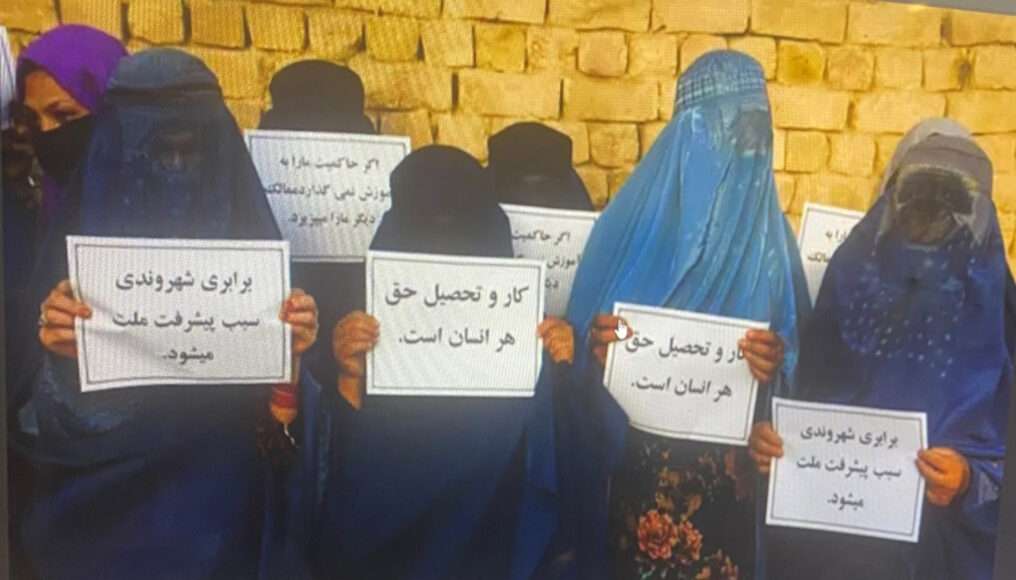 اگر حاکمیت مارا به
آموزش نمی گذارد ممالک
دیگر مارا میپزیرد.
برابری شهروندی
سبب پیشرفت ملت
میشود.
کار و تحصیل حق
هر انسان است.
اگر حاکمیت
آموزش
دیگر
کار و تحصیل حق
هر انسان است.
مارا به
ممالک
برابری شهروندی
سبب پیشرفت ملت
میشود.